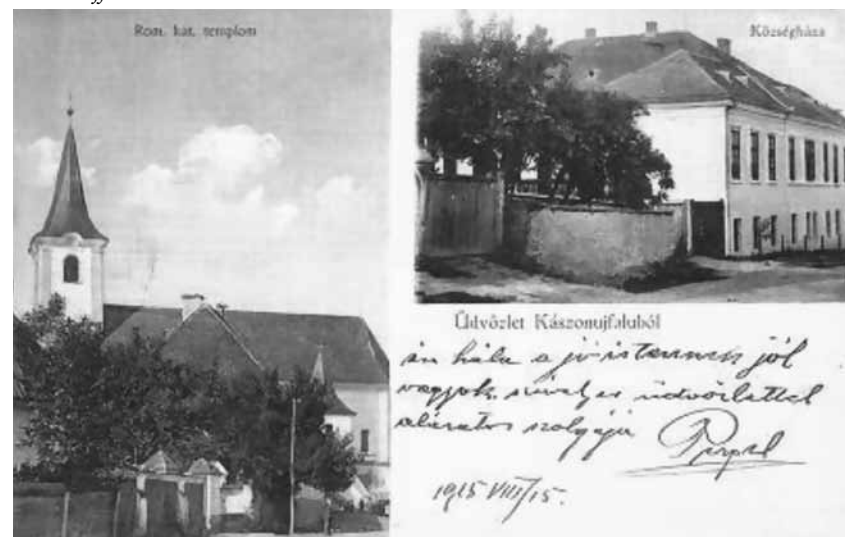 Rom. kat. templom
Községháza
Üdvözlet Kászonujfaluból
én hála a jó istennek jól
vagyok, szivelyes üdvözlettel
alázatos szolgája
1915 VIII/15.